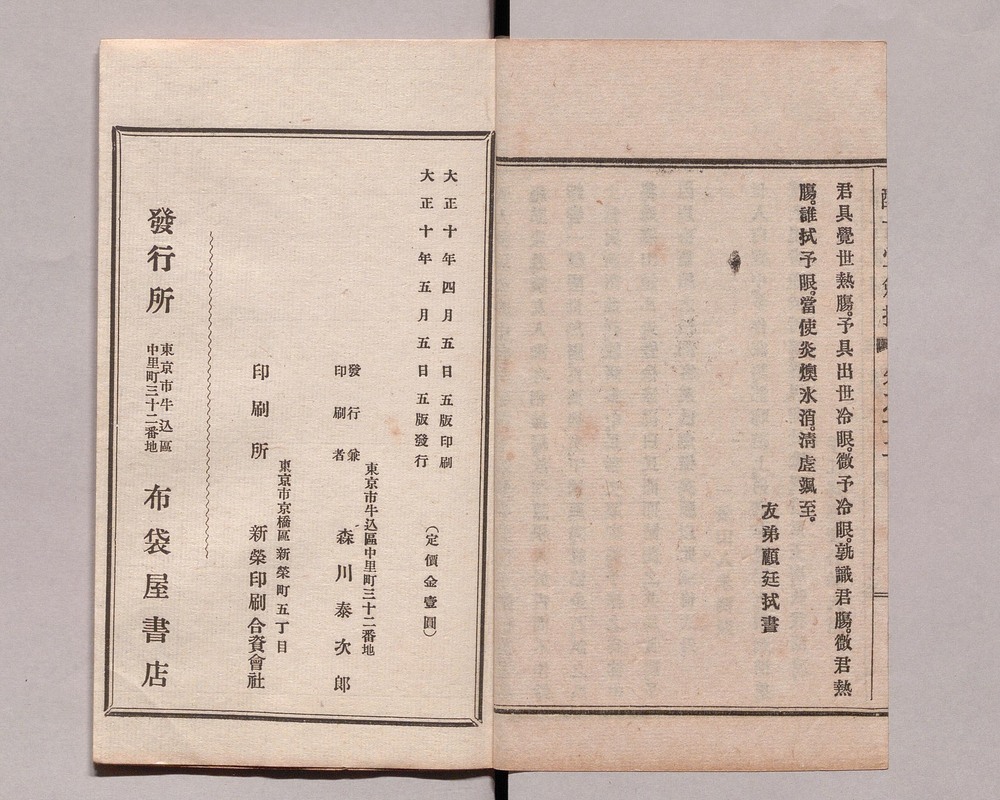 君具覺世熱膓。予具出世冷眼。微予冷眼。孰識君膓。微君熱
膓。誰拭予眼。當使炎燠氷消。淸虛颯至。
友弟顧廷拭書
大正十年四月五日五版印刷
大正十年五月五日五版發行
(定價金壹圓)
東京市牛込區中里町三十二番地
發行兼
印刷者
森川泰次郎
東京市京橋區新榮町五丁目
印刷所
新榮印刷合資會社
發行所
東京市牛込區
中里町三十二番地
布袋屋書店